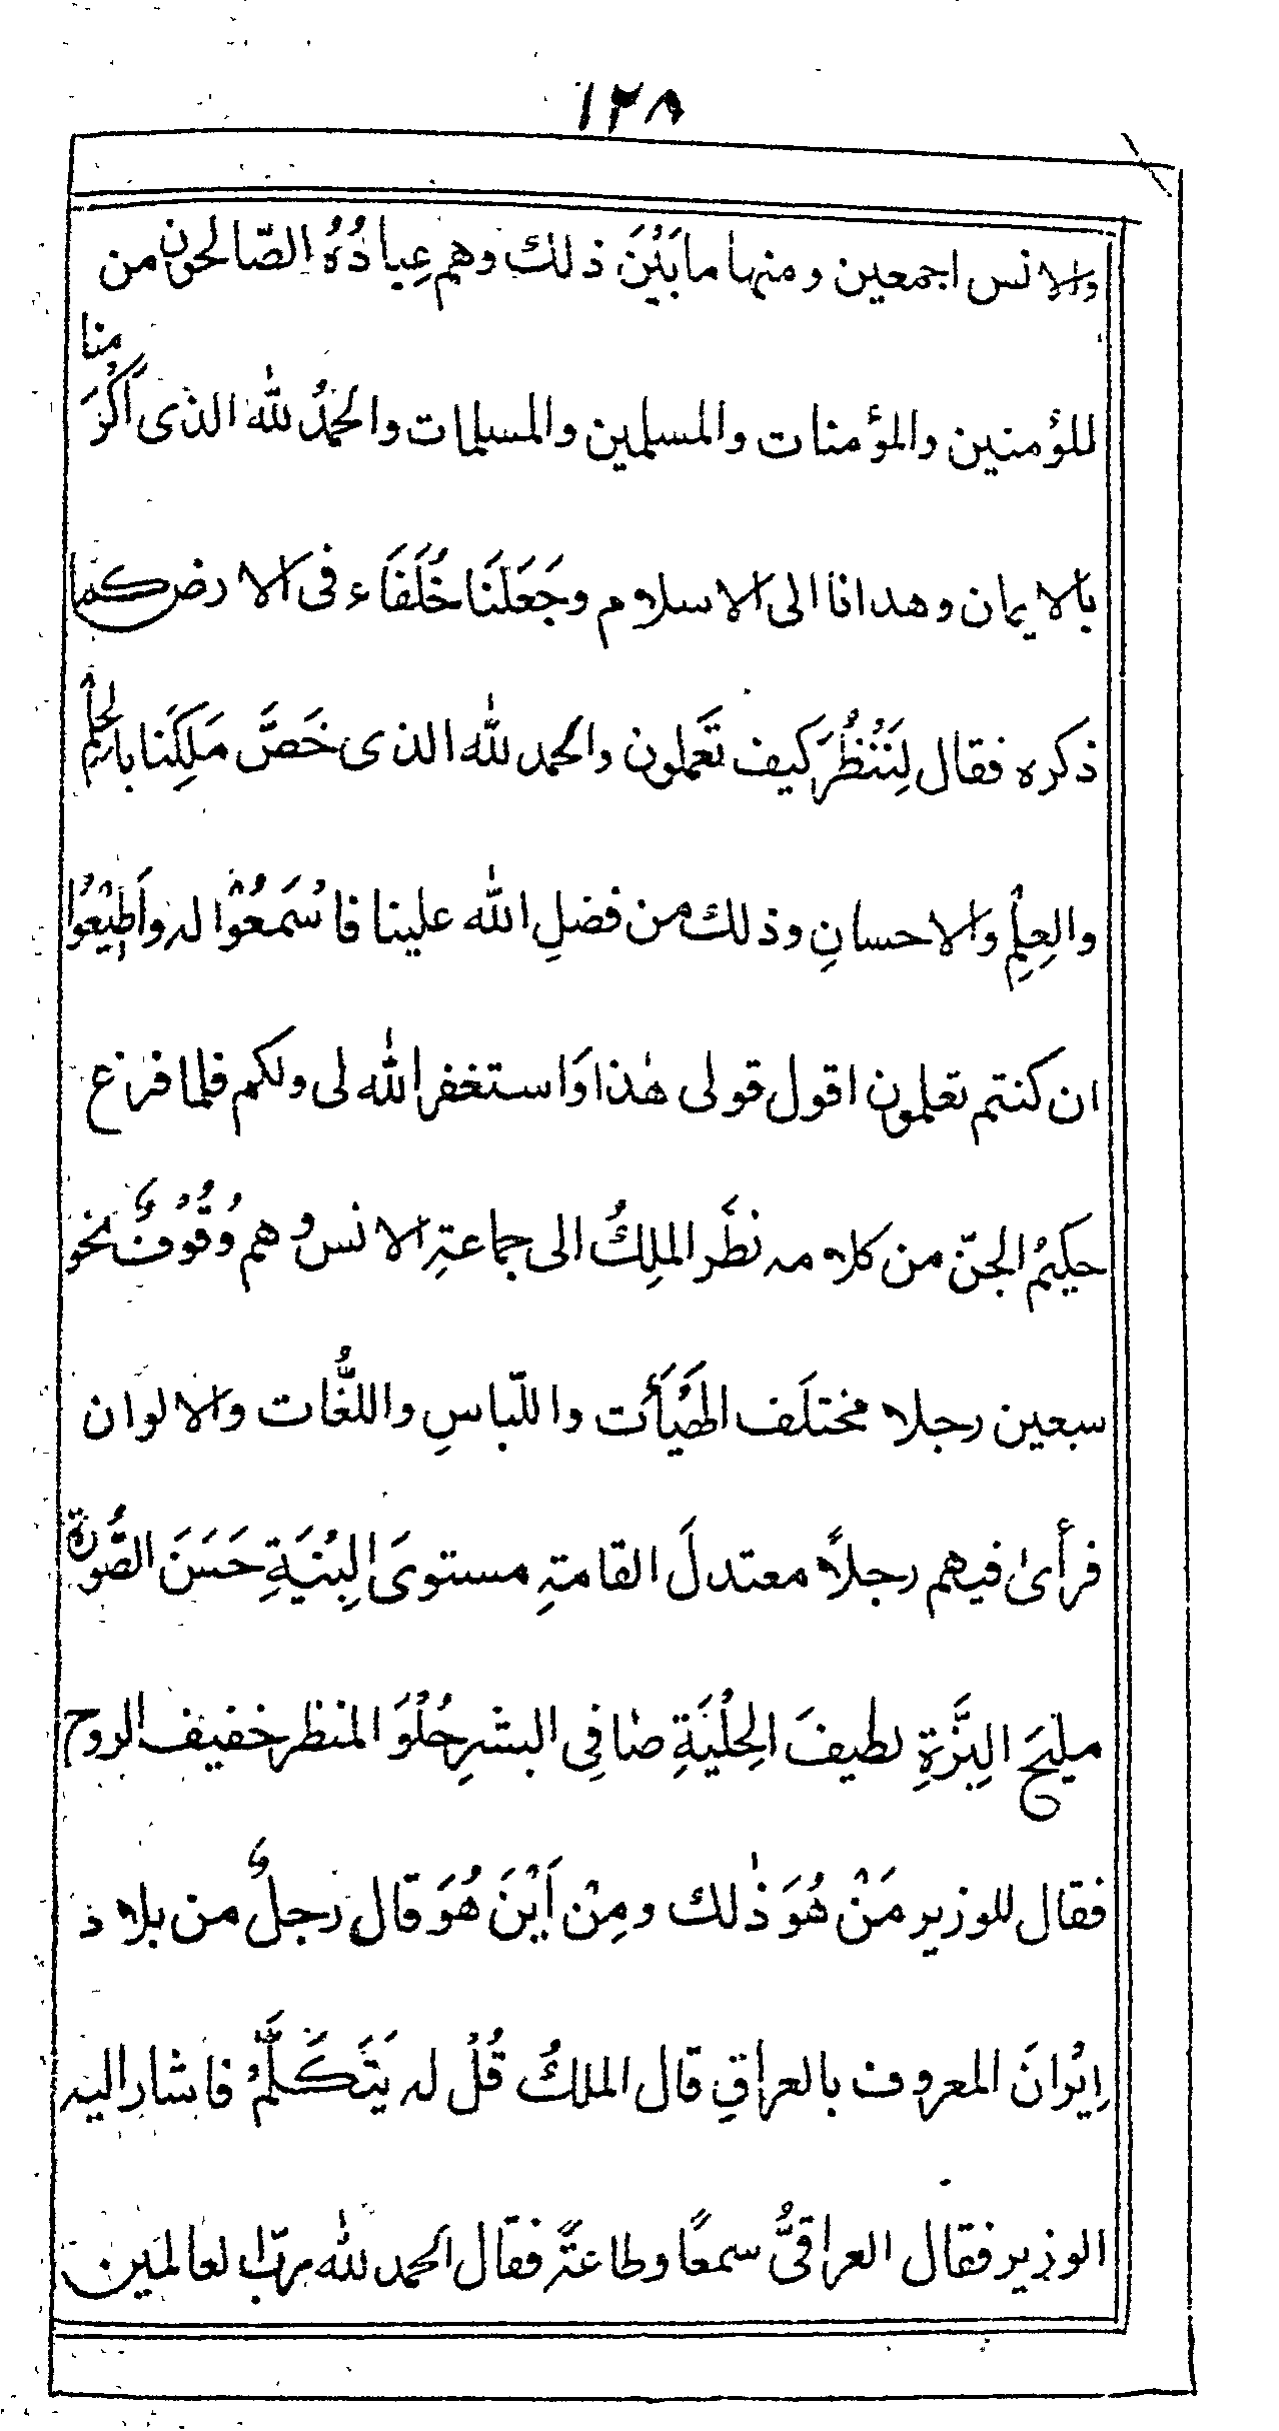 ١٢٨
والانس اجمعين ومنها ما بَيْنَ ذلك وهم عِبادُهُ الصّالحون من
للمؤمنين والمؤمنات والمسلمين والمسلمات والحمدُ لله الذى اَكْرَمنا
بالايمان وهدانا الى الاسلام وجَعَلَنَا خُلَفَاء فى الارض كما
ذكره فقال لِنَنْظُرَ كيف تَعملون والحمد لله الذى خَصَّ مَلِكَنا بالحِلْمِ
والعِلْمِ والاحسانِ وذلك من فضلِ الله علينا فاسْمَعُوْا له واَطِيْعُوْا
ان كنتم تعلمون اقول قولى هٰذا وَاستغفر الله لى ولكم فلما فرغ
حكيمُ الجنّ من كلامه نظَر الملِكُ الى جماعةِ الانس وهم وُقُوْفٌ نحو
سبعين رجلا مختلَف الهَيْأَت واللّباسِ واللُّغات والالوان
فرأىٰ فيهم رجلاً معتدلَ القامةِ مستوىَ البِنْيَةِ حَسَنَ الصُّورة
مليحَ البِزَّةِ لطيفَ الحِلْيَةِ صافِى البشرِ حُلْوَ المنظر خفيف الروح
فقال للوزير مَنْ هُوَ ذٰلك ومِنْ اَيْنَ هُوَ قال رجلٌ من بلاد
اِيْرانَ المعروف بالعراقِ قال الملكُ قُلْ له يَتَكَلَّمْ فاشار اليه
الوزير فقال العراقىُّ سمعًا وطاعةً فقال الحمد لله ربّ العالمين